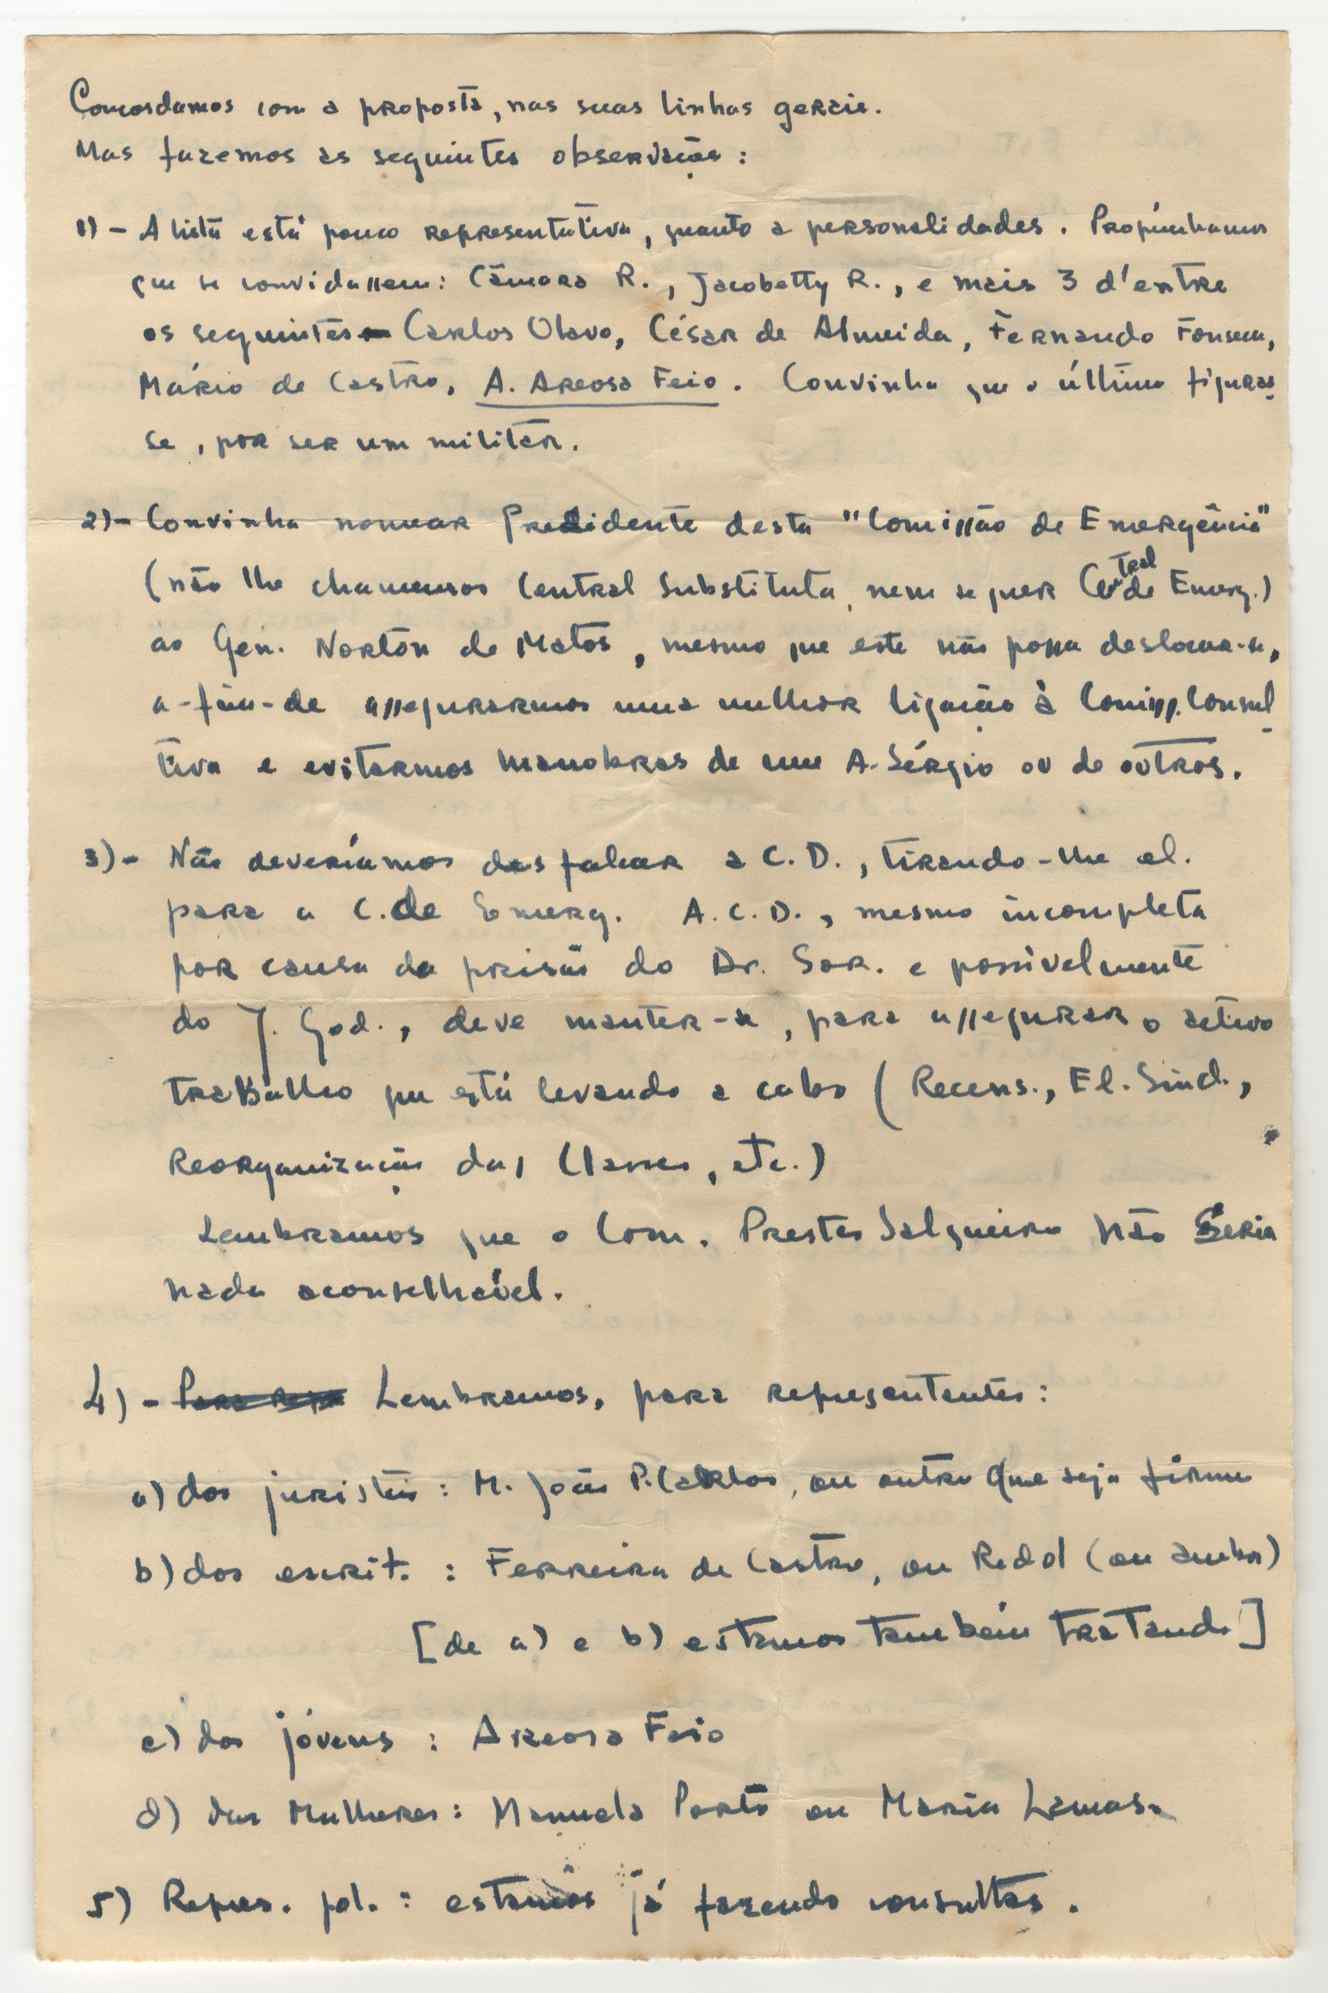 Concordamos com a proposta, nas suas linhas gerais.
Mas fazemos as seguintes observações:
1) - A lista está pouco representativa, quanto a personalidades. Propúnhamos
que se convidassem: Câmara R., Jacobetty R., e mais 3 d'entre
os seguintes Carlos Olavo, César de Almeida, Fernando Fonseca,
Mário de Castro, A. Areosa Feio. Convinha que o último figuras
se, por ser um militar.
2) - Convinha nomear Presidente desta "Comissão de Emergência"
(não lhe chamemos Central Substituta, nem sequer Central de Emerg.)
ao Gen. Norton de Matos, mesmo que este não possa deslocar-se,
a-fim-de assegurarmos uma melhor ligação à Comiss. Consul
tiva e evitarmos manobras de um A. Sérgio ou de outros.
3) - Não deveríamos desfalcar a C. D., tirando-lhe el.
para a C. de Emerg. A. C. D., mesmo incompleta
por causa da prisão do Dr. Sar. e possivelmente
do J. God., deve manter-se, para assegurar o activo
trabalho que está levando a cabo (Recens., El. Sind.,
Reorganização das Classes, etc.)
Lembramos que o Com. Prestes Salgueiro não seria
nada aconselhável.
4) - Lembramos, para representantes:
a) dos juristas: M. João P. Carlos, ou outro que seja firme
b) dos escrit. : Ferreira de Castro, ou Redol (ou ambos)
[de a) e b) estamos também tratando]
c) dos jóvens : Areosa Feio
d) das Mulheres : Manuela Porto ou Maria Lamas.
5) Repres. pol. : estamos já fazendo consultas.